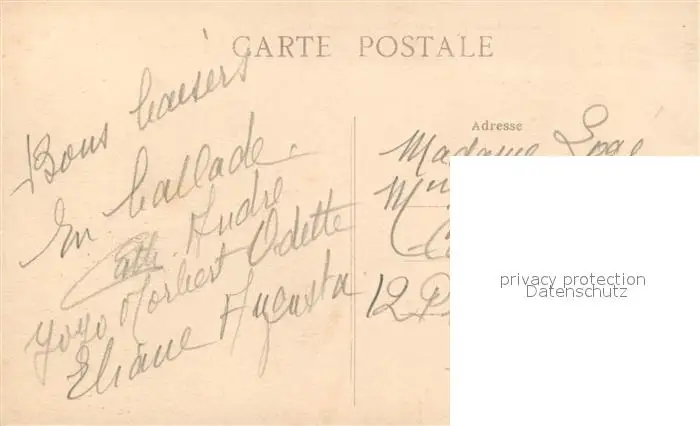 CARTE POSTALE
Bons baisers
En ballade
Cath André
Yoyo Norbert Odette
Eliane Augusta
Adresse
Madame
12
privacy protection
Datenschutz